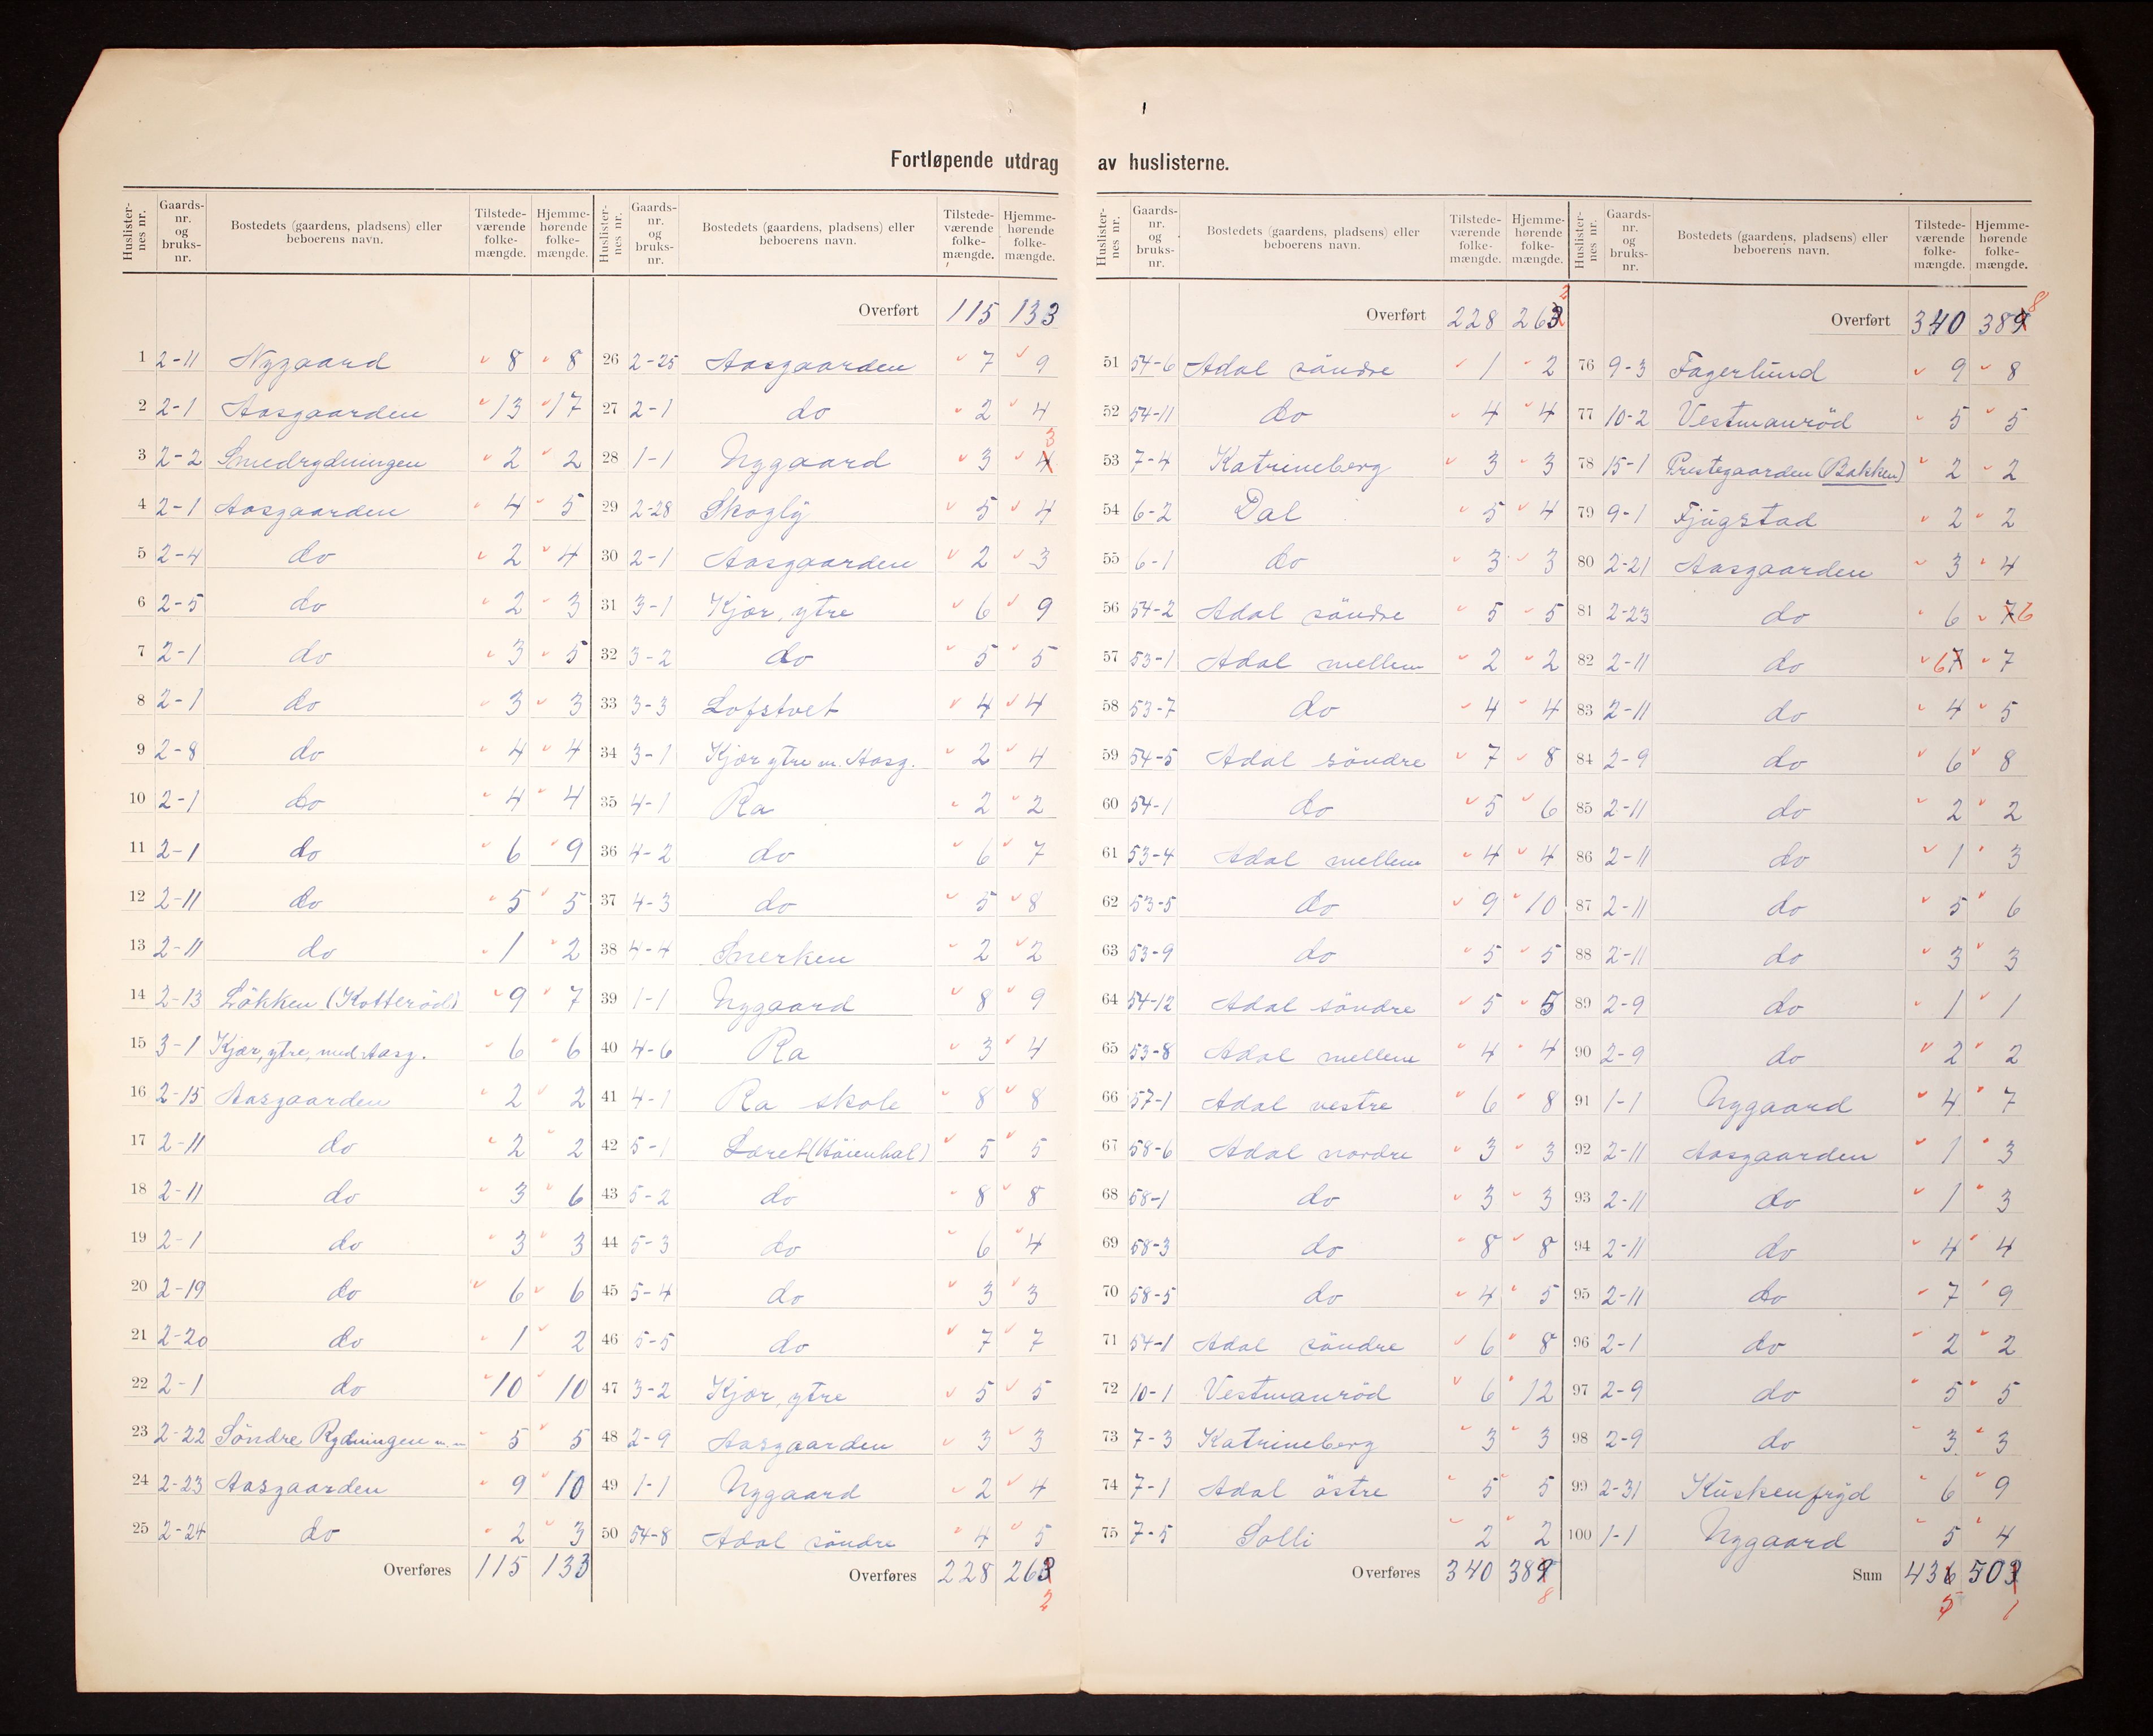 Fortløpende utdrag av huslisterne.
Huslisternes nr. Gaardsnr. og bruksnr. Bostedets (gaardens, pladsens) eller beboerens navn. Tilstedeværende folkemængde. Hjemmehørende folkemængde.
1 2-11 Nygaard 8 8
2 2-1 Aasgaarden 13 17
3 2-2 Smedrydningen 2 2
4 2-1 Aasgaarden 4 5
5 2-4 do 2 4
6 2-5 do 2 3
7 2-1 do 3 5
8 2-1 do 3 3
9 2-8 do 4 4
10 2-1 do 4 4
11 2-1 do 6 9
12 2-11 do 5 5
13 2-11 do 1 2
14 2-13 Lökken (Kotteröd) 9 7
15 3-1 Kjær, ytre, med Aasg. 6 6
16 2-15 Aasgaarden 2 2
17 2-11 do 2 2
18 2-11 do 3 6
19 2-1 do 3 3
20 2-19 do 6 6
21 2-20 do 1 2
22 2-1 do 10 10
23 2-22 Söndre Rydningen m. m 5 5
24 2-23 Aasgaarden 9 10
25 2-24 do 2 3
Overføres 115 133
Huslisternes nr. Gaardsnr. og bruksnr. Bostedets (gaardens, pladsens) eller beboerens navn. Tilstedeværende folkemængde. Hjemmehørende folkemængde.
Overført 115 133
26 2-25 Aasgaarden 7 9
27 2-1 do 2 4
28 1-1 Nygaard 3 4 3
29 2-28 Skogly 5 4
30 2-1 Aasgaarden 2 3
31 3-1 Kjær, ytre 6 9
32 3-2 do 5 5
33 3-3 Lofstvet 4 4
34 3-1 Kjær ytre m. Aasg. 2 4
35 4-1 Ra 2 2
36 4-2 do 6 7
37 4-3 do 5 8
38 4-4 Snerken 2 2
39 1-1 Nygaard 8 9
40 4-6 Ra 3 4
41 4-1 Ra skole 8 8
42 5-1 Loret (Höienhal) 5 5
43 5-2 do 8 8
44 5-3 do 6 4
45 5-4 do 3 3
46 5-5 do 7 7
47 3-2 Kjær, ytre 5 5
48 2-9 Aasgaarden 3 3
49 1-1 Nygaard 2 4
50 54-8 Adal söndre 4 5
Overføres 228 263 2
Huslisternes nr. Gaardsnr. og bruksnr. Bostedets (gaardens, pladsens) eller beboerens navn. Tilstedeværende folkemængde. Hjemmehørende folkemængde.
Overført 228 263 2
51 54-6 Adal söndre 1 2
52 54-11 do 4 4
53 7-4 Katrineberg 3 3
54 6-2 Dal 5 4
55 6-1 do 3 3
56 54-2 Adal söndre 5 5
57 53-1 Adal mellem 2 2
58 53-7 do 4 4
59 54-5 Adal söndre 7 8
60 54-1 do 5 6
61 53-4 Adal mellem 4 4
62 53-5 do 9 10
63 53-9 do 5 5
64 54-12 Adal söndre 5 5
65 53-8 Adal mellem 4 4
66 57-1 Adal vestre 6 8
67 58-6 Adal nordre 3 3
68 58-1 do 3 3
69 58-3 do 8 8
70 58-5 do 4 5
71 54-1 Adal söndre 6 8
72 10-1 Vestmanröd 6 12
73 7-3 Katrineberg 3 3
74 7-1 Adal östre 5 5
75 7-5 Solli 2 2
Overføres 340 389 8
Huslisternes nr. Gaardsnr. og bruksnr. Bostedets (gaardens, pladsens) eller beboerens navn. Tilstedeværende folkemængde. Hjemmehørende folkemængde.
Overført 340 389 8
76 9-3 Fagerlund 9 8
77 10-2 Vestmanröd 5 5
78 15-1 Prestegaarden (Bakken) 2 2
79 9-1 Fjugstad 2 2
80 2-21 Aasgaarden 3 4
81 2-23 do 6 7 6
82 2-11 do 6 7 7
83 2-11 do 4 5
84 2-9 do 6 8
85 2-11 do 2 2
86 2-11 do 1 3
87 2-11 do 5 6
88 2-11 do 3 3
89 2-9 do 1 1
90 2-9 do 2 2
91 1-1 Nygaard 4 7
92 2-11 Aasgaarden 1 3
93 2-11 do 1 3
94 2-11 do 4 4
95 2-11 do 7 9
96 2-1 do 2 2
97 2-9 do 5 5
98 2-9 do 3 3
99 2-31 Kuskenfryd 6 9
100 1-1 Nygaard 5 4
Sum 436 503
5 1